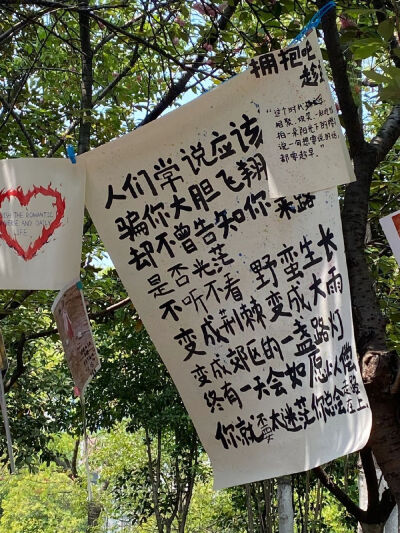 人们常说应该
骗你大胆飞翔
却不曾告知你来路
是否光茫
不听不看 野蛮生长
变成荆棘变成大雨
变成郊区的一盏路灯
终有一天会如愿以偿
你就耍大迷茫你总会走上
拥抱吧
趁
“这个时代
说一句想要说的话,
都要趁早.”
THE ROMANTIC
AND
LIFE